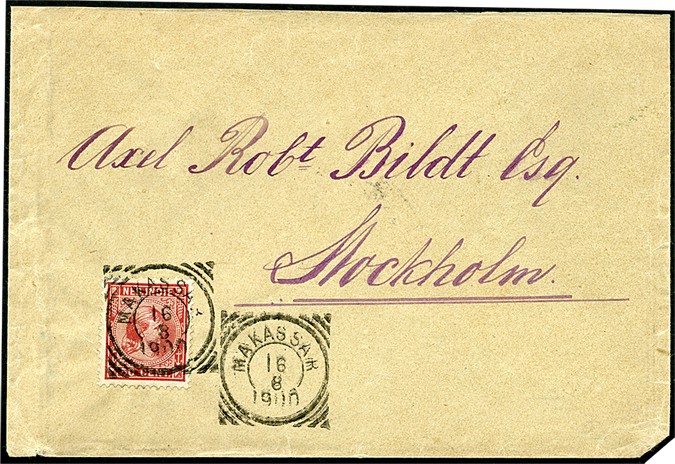 Axel Robt Bildt Esq.
Stockholm.
MAKASSAR
16
8
1900
MAKASSAR
16
8
1900